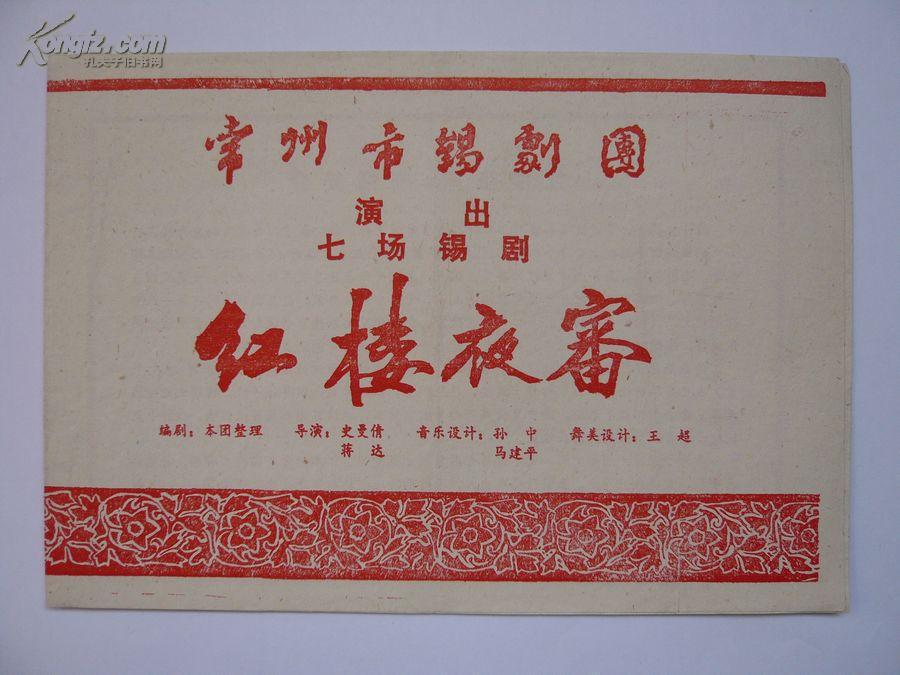 Kongfz.com
孔夫子旧书网
常州市錫劇團
演出
七场锡剧
红楼夜審
编剧：本团整理 导演：史曼倩 音乐设计：孙中 舞美设计：王超
蒋达 马建平